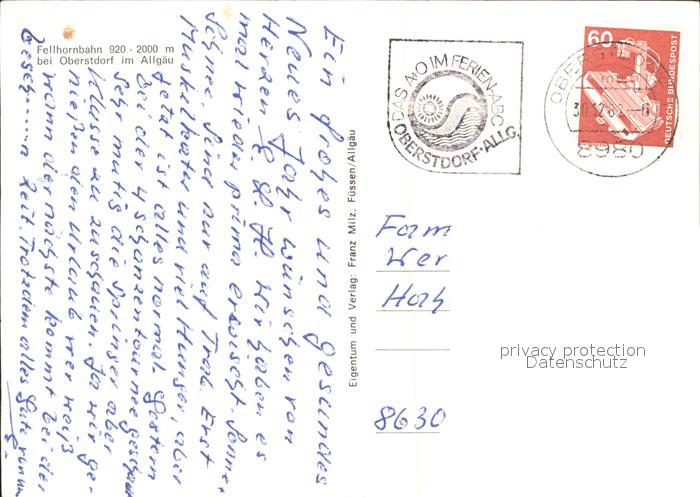 Fellhornbahn 920 - 2000 m
bei Oberstdorf im Allgäu
Ein frohes und gesundes
Neues Jahr wünschen von
Herzen
Wir haben es
mal wieder prima erwischt. Sonne +
Schnee. Sind nur auf Trab. Erst
Muskelkater und viel Hunger, aber
jetzt ist alles normal. Gestern
bei der 4 schanzentournee
Sehr mutig die Springer aber
Klasse zu zuschauen. Ja wir ge-
nießen den Urlaub wer weiß
wann der nächste kommt bei der
Zeit. Trotzdem alles Gute
Eigentum und Verlag: Franz Milz, Füssen/Allgäu
DAS A-O IM FERIEN-ABC
OBERSTDORF·ALLG.
60
DEUTSCHE BUNDESPOST
8980
Fam
Wer
Hah
8630
privacy protection
Datenschutz